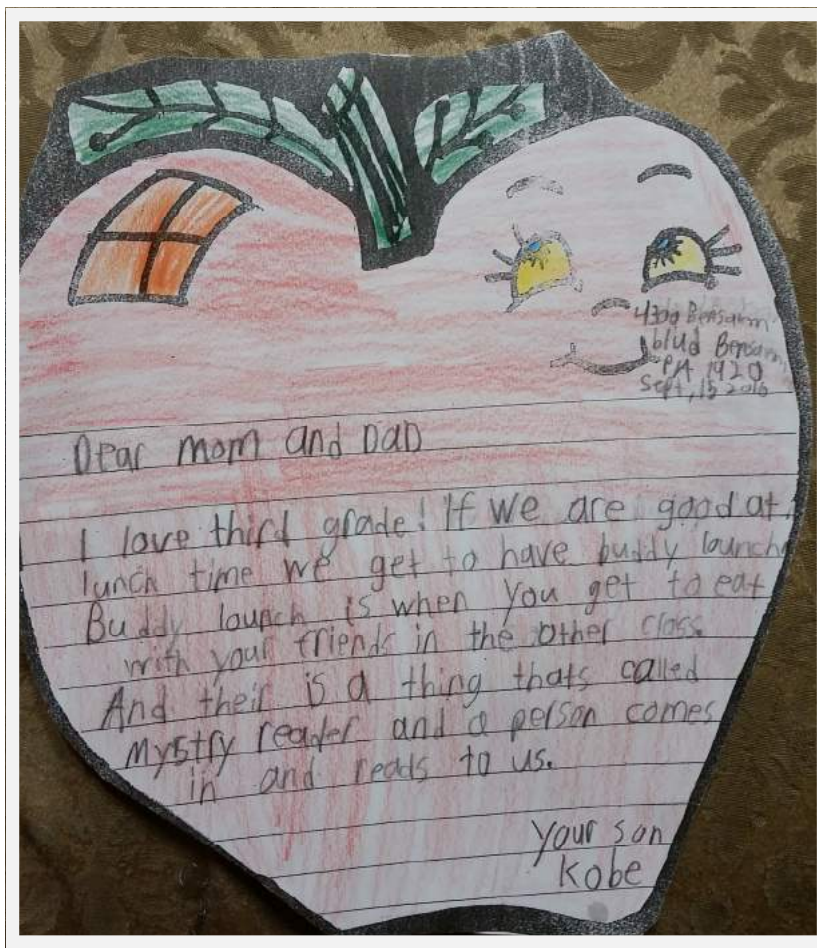 4300 Bensalem
blud Bensalem
PA 1920
Sept, 15 2016
Dear mom and DaD
I love third grade! If we are good at
lunch time we get to have buddy launch
Buddy launch is when you get to eat
with your friends in the other class.
And their is a thing thats called
mystry reader and a person comes
in and reads to us.
your son
Kobe